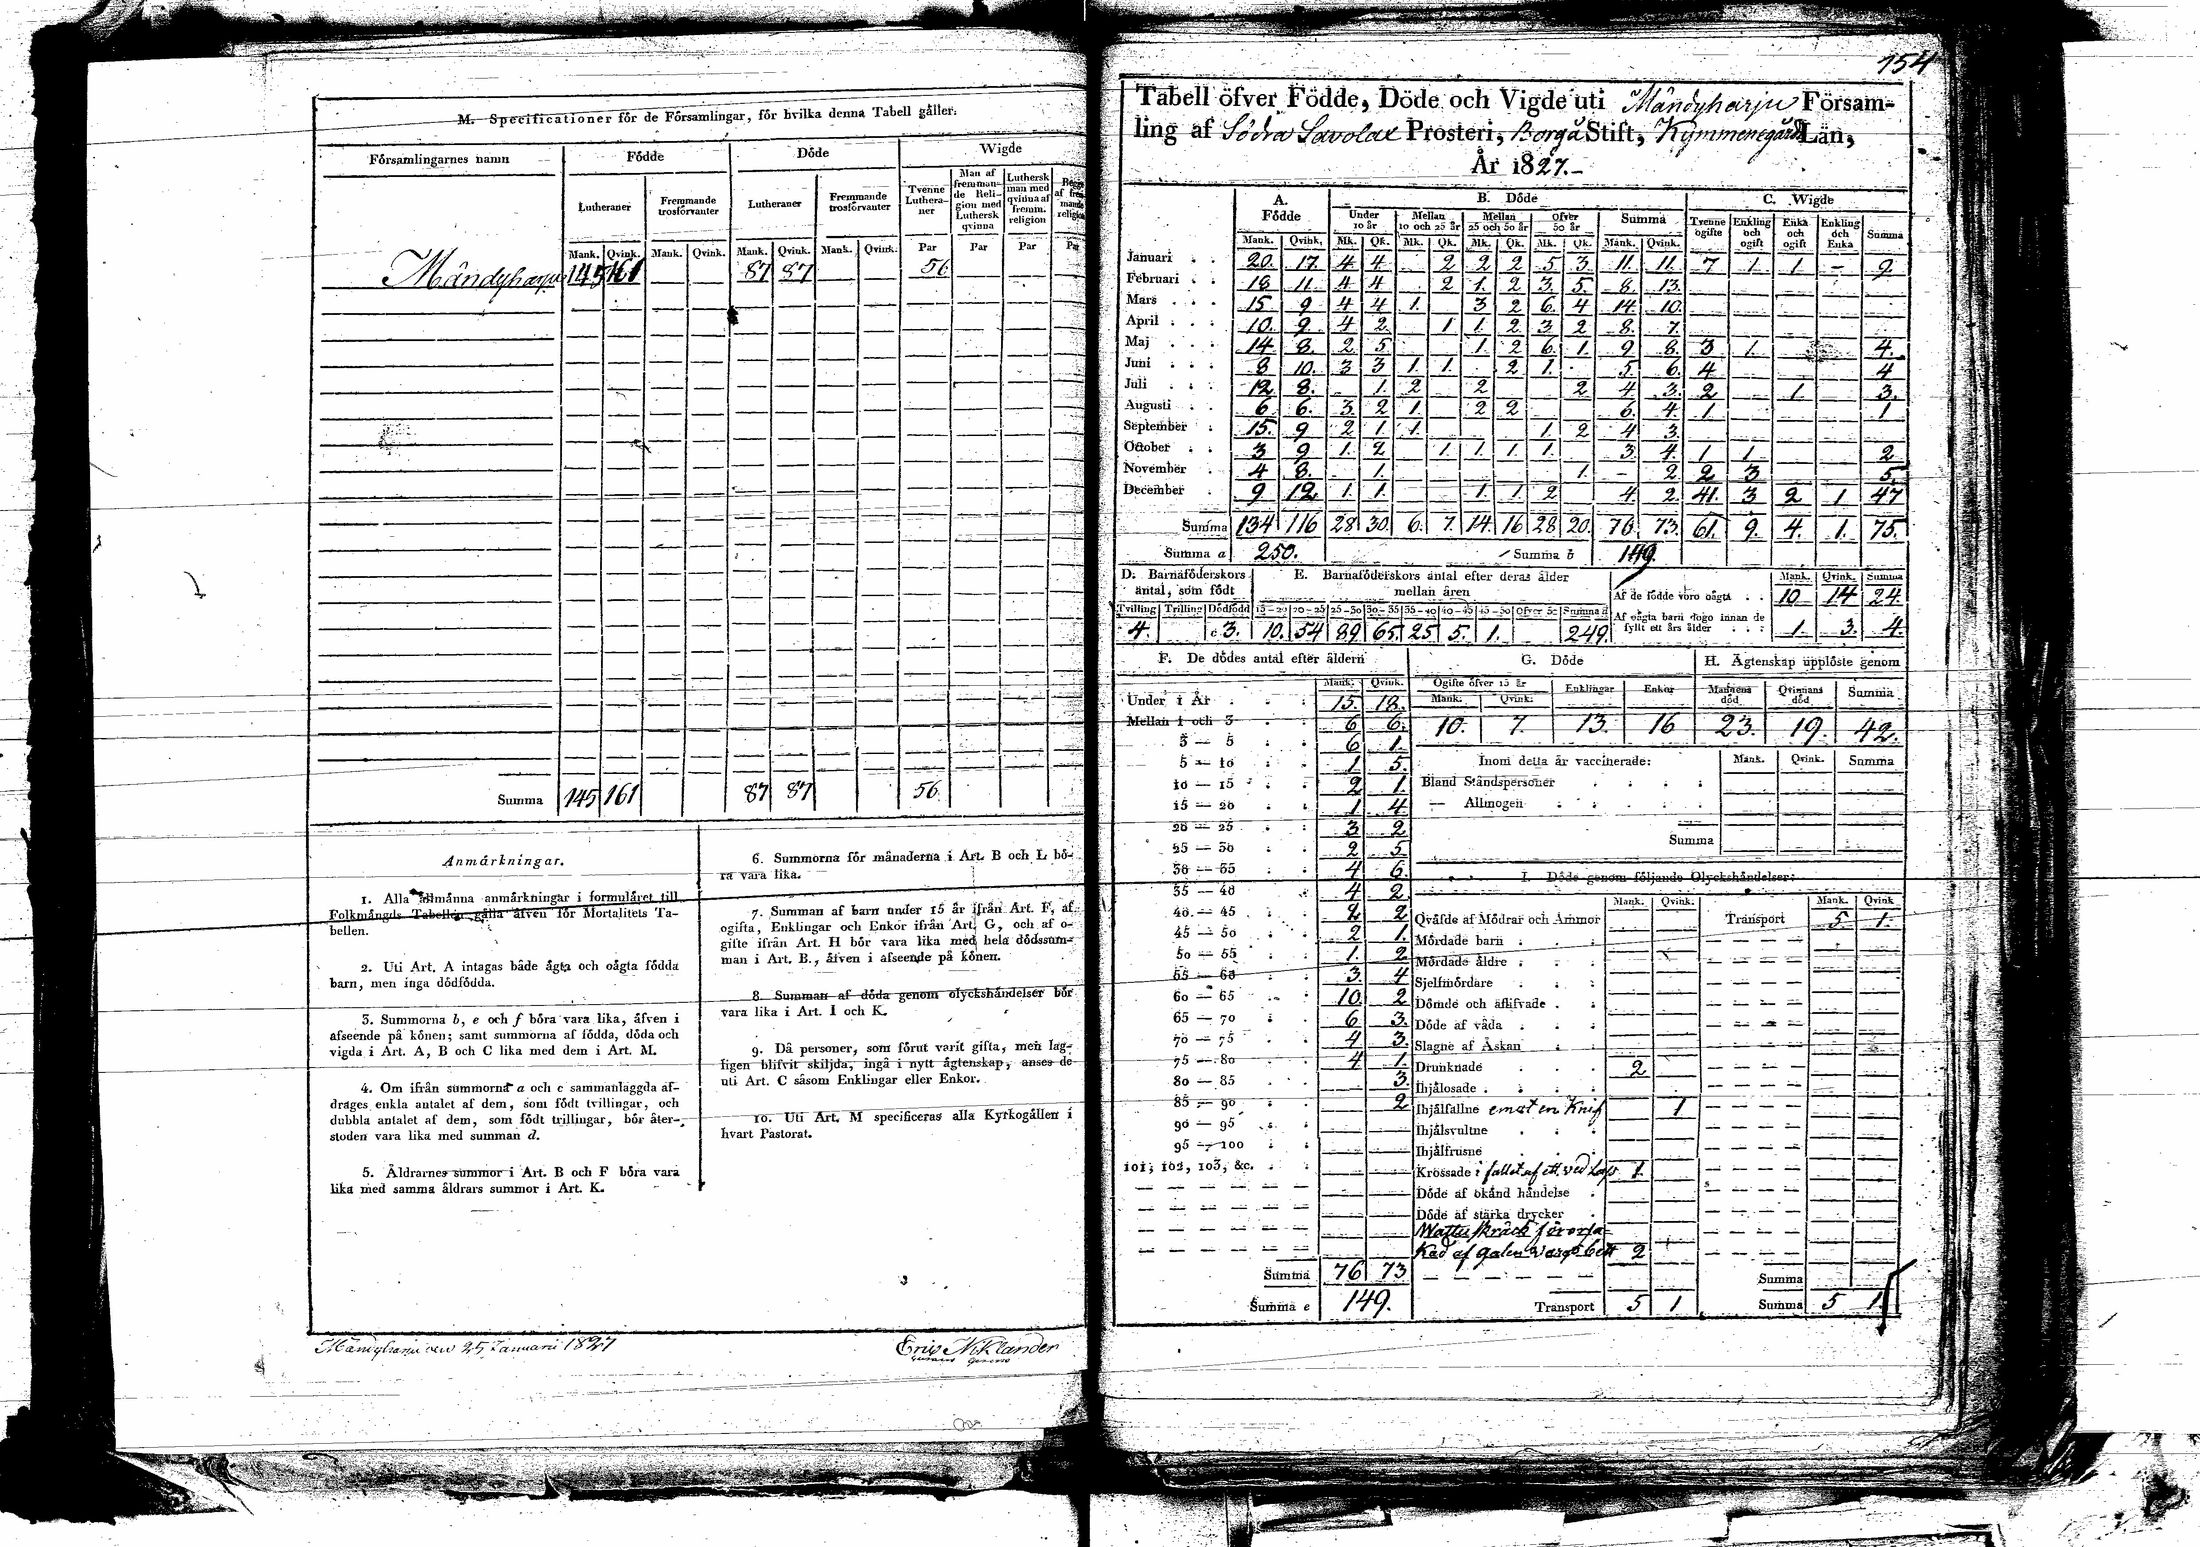 M. Specificationer för de Församlingar, för hvilka denna Tabell gäller.
Församlingarnes namn Födde Döde Wigde
Lutheraner Fremmande trosförvanter Lutheraner Fremmande trosförvanter Tvenne Lutheraner Man af fremmande Religion med Luthersk qvinna Luthersk man med qvinna af fremm. religion
Mank. Qvink. Mank. Qvink. Mank. Qvink. Mank. Qvink. Par Par Par
Mändyharju 145 161 87 87 56
Summa 145 161 87 87 56.
Anmärkningar.
1. Alla allmänna anmärkningar i formuläret till
Folkmängds Tabellen gälla äfven för Mortalitets Ta-
bellen.
2. Uti Art. A intagas både ägta och oägta födda
barn, men inga dödfödda.
3. Summorna b, e och f böra vara lika, äfven i
afseende på könen; samt summorna af födda, döda och
vigda i Art. A, B och C lika med dem i Art. M.
4. Om ifrån summorna a och c sammanlaggda af-
drages enkla antalet af dem, som födt tvillingar, och
dubbla antalet af dem, som födt trillingar, bör åter-
stoden vara lika med summan d.
5. Åldrarnes summor i Art. B och F böra vara
lika med samma åldrars summor i Art. K.
6. Summorna för månaderna i Art. B och L bö-
ra vara lika.
7. Summan af barn under 15 år ifrån Art. F, af
ogifta, Enklingar och Enkor ifrån Art. G, och af o-
gifte ifrån Art. H bör vara lika med hela dödssum-
man i Art. B., äfven i afseende på könen.
8. Summan af döda genom olyckshändelser bör
vara lika i Art. I och K.
9. Då personer, som förut varit gifta, men lag-
ligen blifvit skiljda, ingå i nytt ägtenskap, anses de
uti Art. C såsom Enklingar eller Enkor.
10. Uti Art. M specificeras alla Kyrkogällen i
hvart Pastorat.
Mändyharju den 25 Januarii 1827
Eric Niklander
154
Tabell öfver Födde, Döde och Vigde uti Mändyharju Försam-
ling af Södra Savolax Prosteri, Borgå Stift, Kymmenegårds Län,
År 1827.
A. Födde B. Döde C. Wigde
Under 10 år Mellan 10 och 25 år Mellan 25 och 50 år Öfver 50 år Summa Tvenne ogifte Enkling och ogift Enka och ogift Enkling och Enka Summa
Mank. Qvink. Mk. Qk. Mk. Qk. Mk. Qk. Mk. Qk. Mank. Qvink.
Januari 20. 17. 4 4. 2 2 2 5 3. 11. 11. 7 1. 1 - 9.
Februari 18 11. 4 4 2 1. 2 3. 5. 8. 13.
Mars 15. 9 4 4 1. 3 2 6. 4 14. 10.
April 10. 9. 4 2. 1 1. 2. 3. 2 8. 7.
Maj 14 8. 2. 5. 1. 2 6. 1. 9 8. 3 1. 4.
Juni 8 10. 3 3 1. 1. 2 1. 5. 6. 4 4
Juli 12 8. 1. 2 2 2 4 3. 2 1 3.
Augusti 6. 6. 3. 2 1. 2 2 6. 4. 1 1
September 15. 9 2 1. 1. 1. 2 4 3.
October 3 9 1. 2 1. 1. 1. 1. 3. 4. 1 1 2
November 4 8. 1. 1. - 2 2 3 5.
December 9 12. 1. 1. 1. 1. 2 4. 2. 41. 3 2 1. 47
Summa 134 116 28 30. 6. 7. 14. 16 28 20. 76. 73. 61. 9. 4. 1. 75.
Summa a 250. Summa b 149.
D. Barnaföderskors antal, som födt
Tvilling Trilling Dödfödd
4. c 3.
E. Barnaföderskors antal efter deras ålder mellan åren
15–20 20–25 25–30 30–35 35–40 40–45 45–50 Öfver 50 Summa d
10. 54 89 65. 25 5. 1. 249.
Mank. Qvink. Summa
Af de födde voro oägta 10 14 24.
Af oägta barn dogo innan de fyllt ett års ålder 1. 3. 4.
F. De dödes antal efter åldern
Mank. Qvink.
Under 1 År 15. 18.
Mellan 1 och 3 6 6.
3 — 5 6 1.
5 — 10 1. 5.
10 — 15 2 1.
15 — 20 1 4
20 — 25 3 2
25 — 30 2 5.
30 — 35 4 6.
35 — 40 4 2
40 — 45 2 2
45 — 50 2 1.
50 — 55 1. 2
55 — 60 3. 4
60 — 65 10. 2
65 — 70 6 3.
70 — 75 4 3.
75 — 80 4 1.
80 — 85 3.
85 — 90 2
90 — 95
95 — 100
101, 102, 103, &c.
Summa 76 73
Summa e 149.
G. Döde
Ogifte öfver 15 år Enklingar Enkor
Mank. Qvink.
10. 7. 13. 16
H. Ägtenskap upplöste genom
Mannens död Qvinnans död Summa
23. 19. 42.
Inom detta år vaccinerade: Mank. Qvink. Summa
Bland Ståndspersoner
— Allmogen
Summa
I. Döde genom följande Olyckshändelser:
Mank. Qvink. Mank. Qvink
Qväfde af Mödrar och Ammor Transport 5 1.
Mördade barn
Mördade äldre
Sjelfmördare
Dömde och aflifvade
Döde af våda
Slagne af Åskan
Drunknade 2
Ihjälosade
Ihjälfallne emot en Knif 1
Ihjälsvultne
Ihjälfrusne
Krossade i fallet af ett ved Lass 1.
Döde af okänd händelse
Döde af starka drycker
Wattu skräck förorsa-
kad af galen Wargs bett 2
Summa
Transport 5 1 Summa 5 1.